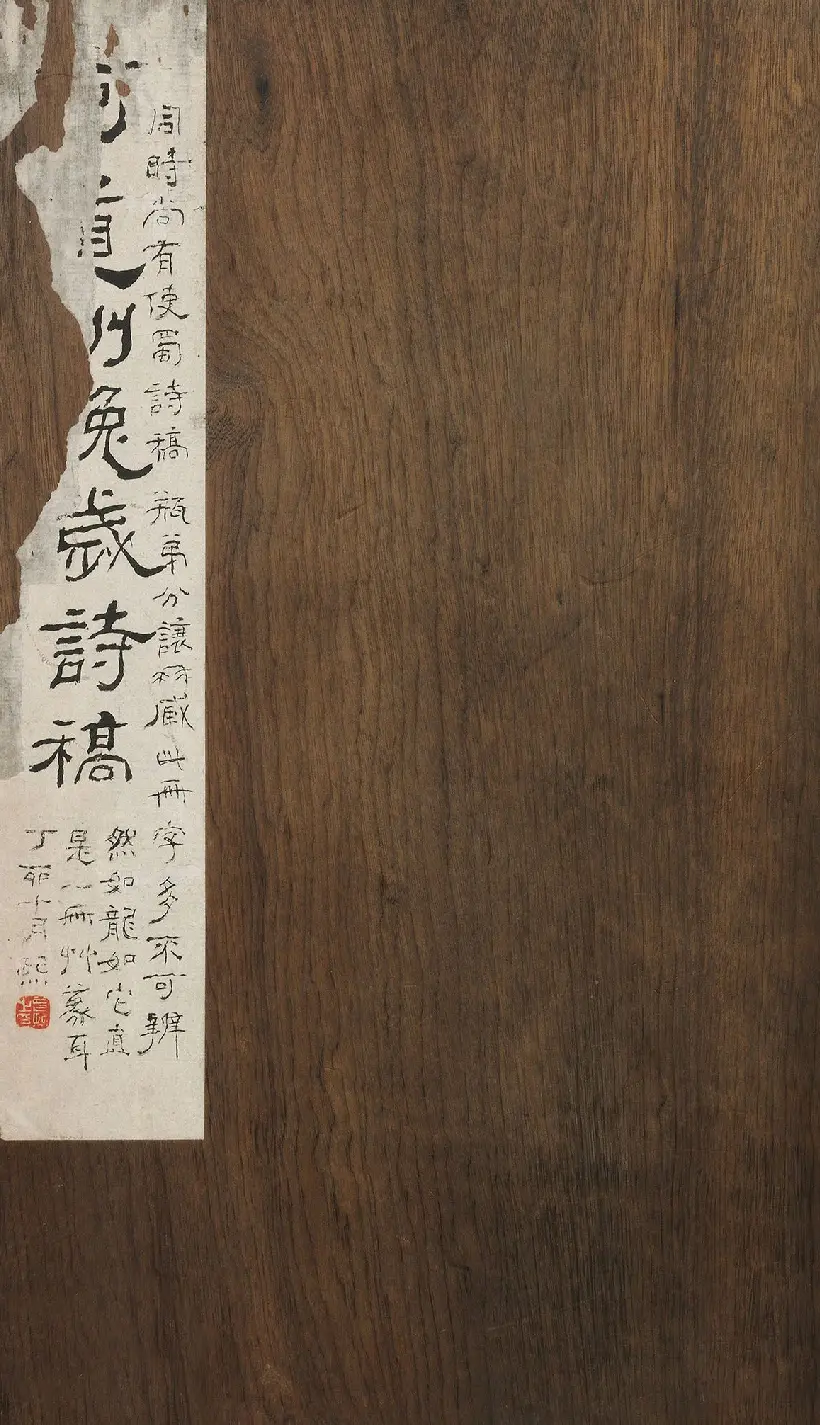 何道州兔歲詩稿
同時尚有使蜀詩稿瓶弟分讓藏此冊字多不可辨
然如龍如它直
是一冊艸篆耳
丁卯十月熙